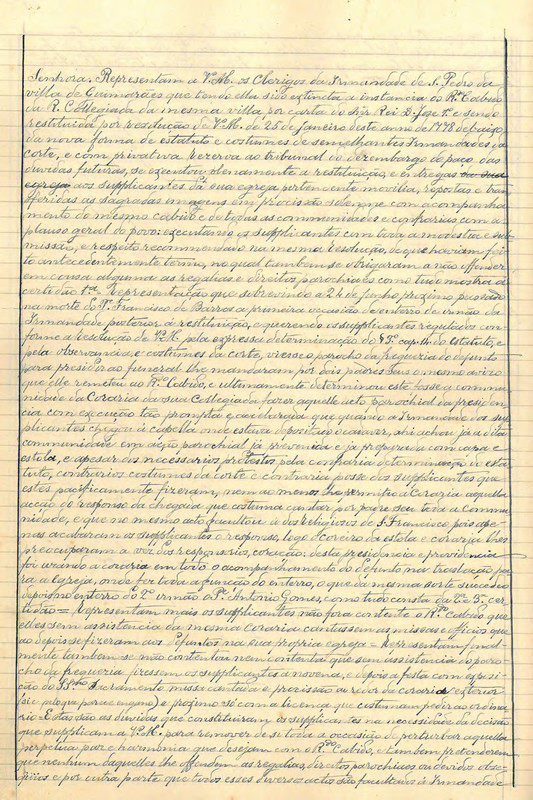 Senhora. Representam a V. M. os Clerigos da Irmandade de S. Pedro da
villa de Guimarães que tendo ella sido extincta a instancia do Rdo Cabido
da R. Collegiada da mesma villa por carta do Snr Rei D. José 1º e sendo
restituida por resolução de V. M. de 25 de janeiro deste anno de 1778 debaixo
da nova forma de estatuto e costumes de semelhantes Irmandades da
côrte, e com privativa rezerva ao tribunal do dezembargo do paço das
duvidas futuras, se executou plenamente a restituição, e entregas da sua
egreja aos supplicantes da sua egreja pertencente movilia, repostas e trans
feridas as sagradas imagens em procissão solemne com acompanha
mento do mesmo cabido e de todas as communidades e confrarias com a
plauso geral do povo: executando os supplicantes com toda a modestia e sub
missão, e respeito recommendado na mesma resolução, do que haviam fei
to antecedentemente termo, no qual tambem se obrigaram a não offender
em cousa alguma as regalias e direitos parochiaes como tudo mostra a
certidão 1ª. Representação que sobrevindo a 24 de junho proximo passado
na morte do Pe Francisco de Barros a primeira occasião de enterro de irmão da
Irmandade posterior á restituição, e querendo os supplicantes regulados con
forme a resolução de V. M. pela expressa determinação do § cap. 14 do Estatuto, e
pela observancia, e costumes da corte, viesse o parocho da freguezia do defunto
para presidir ao funeral lhe mandaram por dois padres seus o mesmo avizo
que elle remetteu ao Rdo Cabido, e ultimamente determinou este fosse a commu
nidade da Coraria da sua Collegiada fazer aquelle acto parochial da presiden
cia com execução tão prompta e accelerada que quando a Irmandade dos sup
plicantes chegou á capella onde estava depositado o cadaver, ahi achou já a dita
communidade em acção parochial já prevenida e já preparada com capa e
estola, e apesar dos necessarios protestos pela contraria determinação do esta
tuto, contrarios costumes da corte e contraria posse dos supplicantes que
estes pacificamente fizeram, nem ao menos lhe permittiu a Coraria aquella
acção do responso da chegada que costuma cantar por fazer seu toda a Commu
nidade, e que no mesmo acto facultou á dos religiosos de S. Francisco pois ape-
nas acabaram os supplicantes o responso, logo o Coreiro da estola e coraria lhes
preoccuparam a voz dos responsorios, e oração: desta presidencia e providencia
foi uzando a coraria em todo o acompanhamento do defunto na trasladação pa
ra a Egreja, onde foi toda a funcção do enterro, o que da mesma sorte succedeo
depois no enterro do 2º irmão o Pe Antonio Gomes, como tudo consta da 2ª e 3ª cer
tidão = Representam mais os supplicantes não fora contente o Rdo Cabido que
elles sem assistencia da mesma Coraria cantassem as missas e officios que
ao depois se fizeram aos defuntos na sua propria egreja = Representam final
mente tambem se não contentou nem contenta que sem assistencia do paro
cho da freguezia fizessem os supplicantes a novena, e depois a festa com exposi
ção do SSmo Sacramento missa cantada e procissão ao redor da coraria exterior
(sic pelo que parece engano) e proximo só com a licença que costumam pedir ao ordina
rio. Estas são as duvidas que constituiram os supplicantes na necessidade da decisão
que supplicam a V. M. para remover de si toda a occasião de perturbar aquella
perpetua paz e harmonia que desejam com o Rdo Cabido, e tambem pretenderem
que nenhum daquelles lhe offendem as regalias, direitos parochiaes ou devidos obse-
quios e por outra parte que todos esses diversos actos são facultados á Irmandade